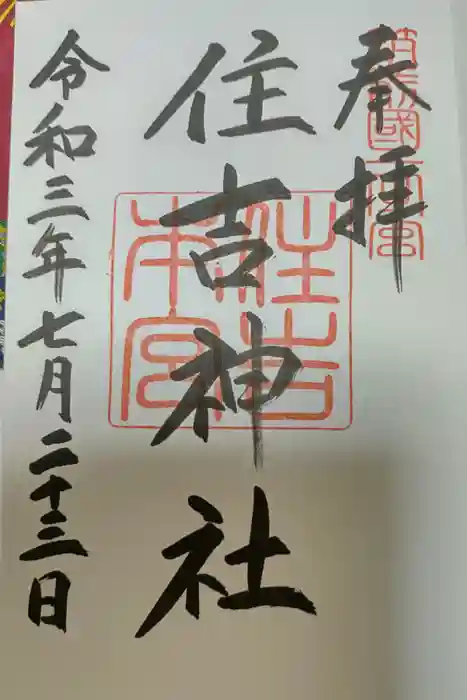 奉拝
住吉神社
令和三年七月二十三日
住吉
本宮